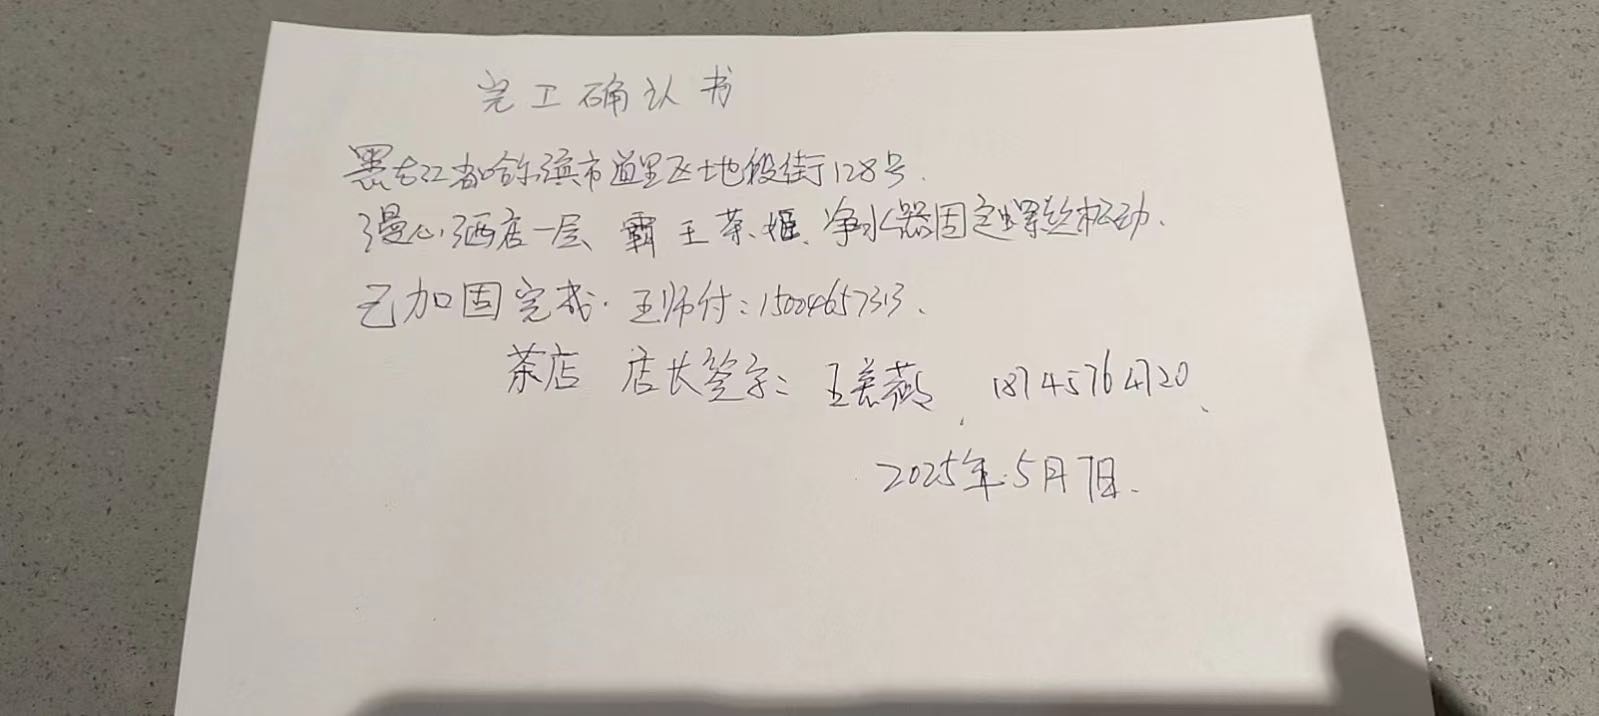 完工确认书
黑龙江省哈尔滨市道里区地段街128号.
漫心酒店一层 霸王茶姬、净水器固定螺丝松动.
已加固完成. 王师付:15004657313.
茶店 店长签字: 王美燕, 18745764720、
2025年.5月7日.